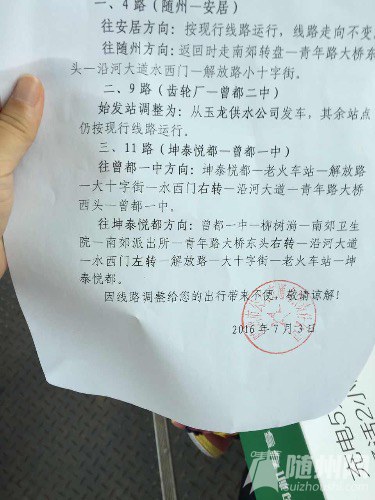 一、4路（随州—安居）
往安居方向：按现行线路运行，线路走向不变
往随州方向：返回时走南郊转盘—青年路大桥东
头—沿河大道水西门—解放路小十字街。
二、9路（齿轮厂—曾都二中）
始发站调整为：从玉龙供水公司发车，其余站点
仍按现行线路运行。
三、11路（坤泰悦都—曾都一中）
往曾都一中方向：坤泰悦都—老火车站—解放路
—大十字街—水西门右转—沿河大道—青年路大桥
西头—曾都一中。
往坤泰悦都方向：曾都一中—柳树淌—南郊卫生
院—南郊派出所—青年路大桥东头右转—沿河大道
—水西门左转—解放路—大十字街—老火车站—坤
泰悦都。
因线路调整给您的出行带来不便，敬请谅解！
2016年7月3日
充电5
话2小
随州
suizhoushi.com